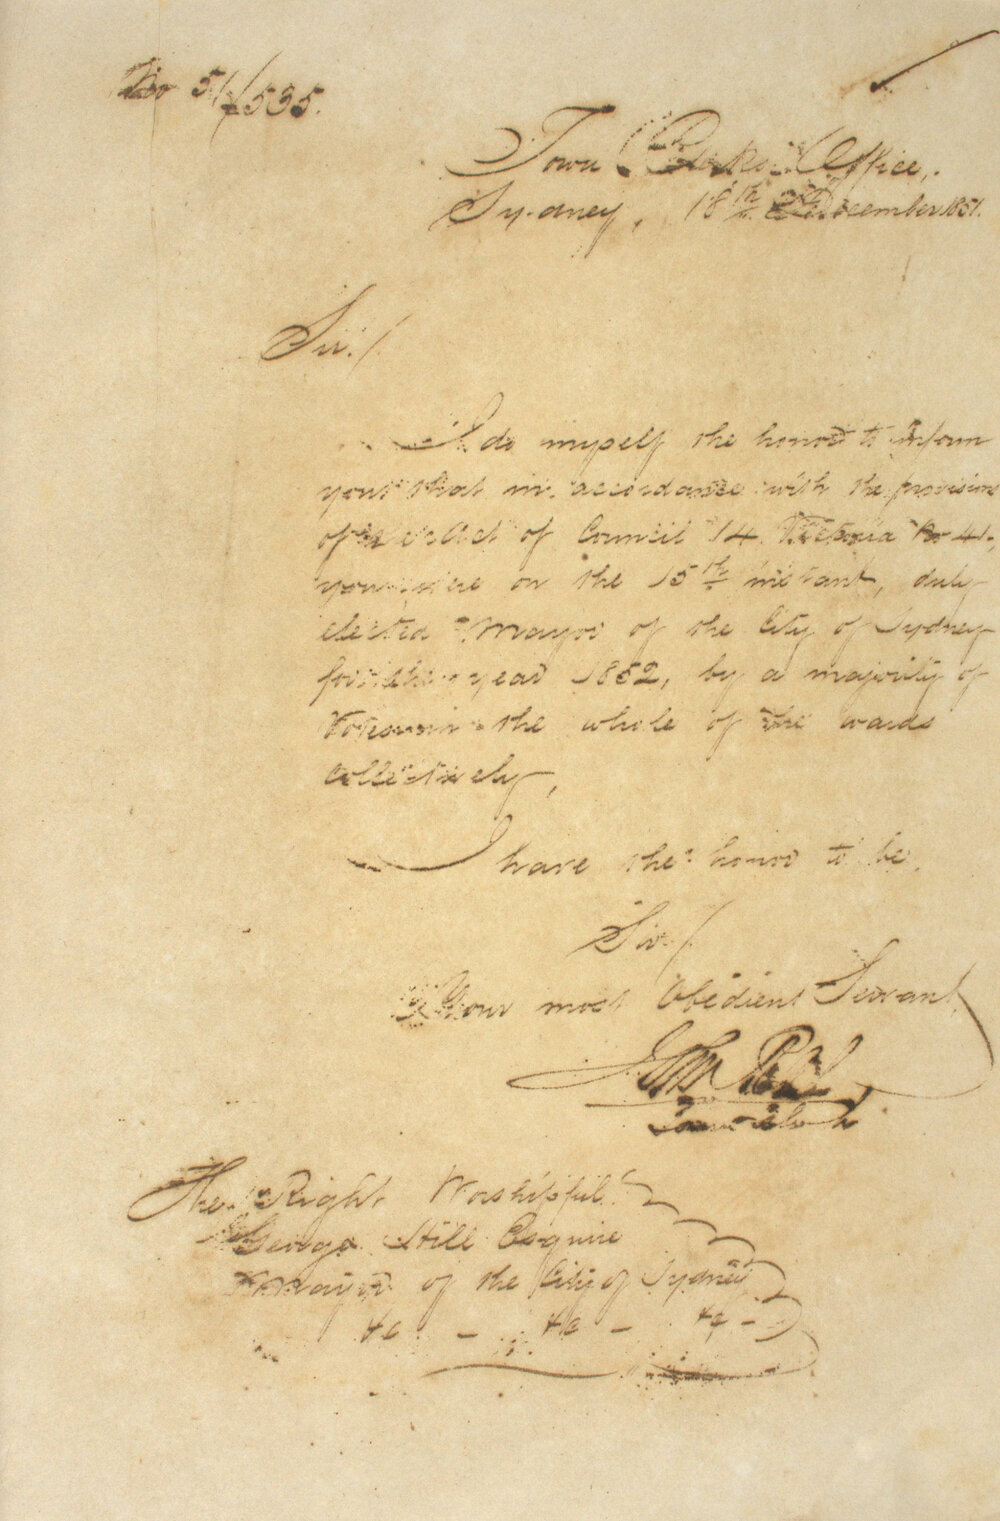 No 51/535.
Town Clerks Office,
Sydney, 18th December 1851.
Sir./
I do myself the honor to inform
you that in accordance with the provisions
of the Act of Council 14 Victoria No 41,
you were on the 15th instant, duly
elected Mayor of the City of Sydney
for the year 1852, by a majority of
Votes in the whole of the wards
collectively,
I have the honor to be,
Sir./
Your most Obedient Servant
John
Town Clerk
The Right Worshipful
George Hill Esquire
Mayor of the City of Sydney
&c - &c - &c -